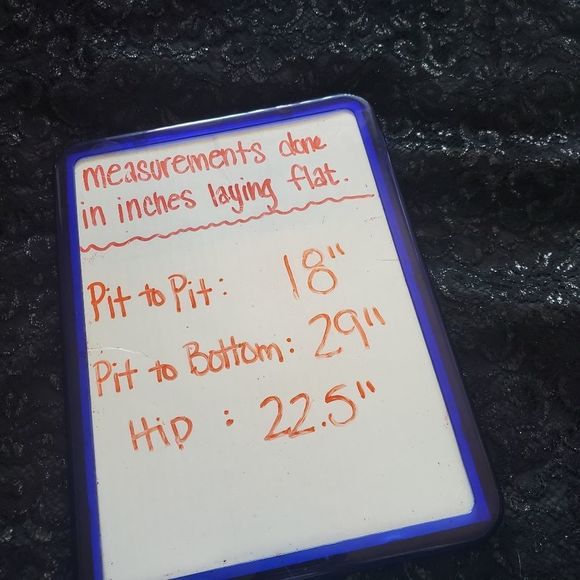 measurements done
in inches laying flat.
Pit to Pit: 18"
Pit to Bottom: 29"
Hip : 22.5"